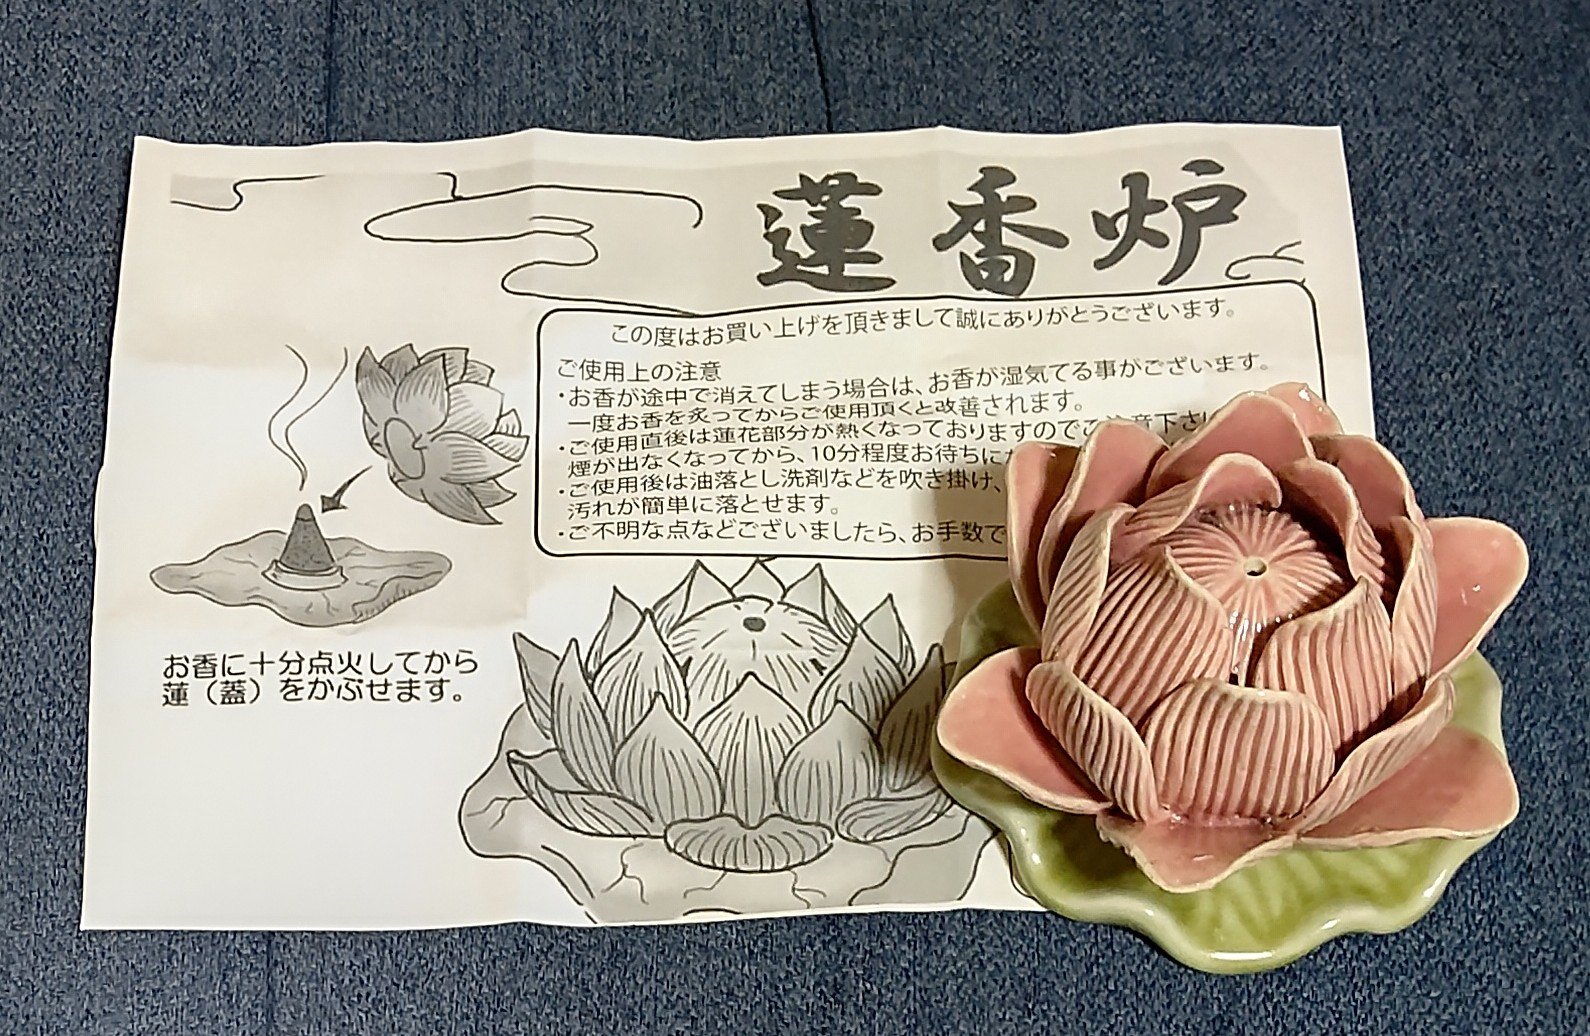 蓮香炉
この度はお買い上げを頂きまして誠にありがとうございます。
ご使用上の注意
・お香が途中で消えてしまう場合は、お香が湿気てる事がございます。
一度お香を炙ってからご使用頂くと改善されます。
・ご使用直後は蓮花部分が熱くなっておりますのでご注意下さい
煙が出なくなってから、10分程度お待ちにな
・ご使用後は油落とし洗剤などを吹き掛け、
汚れが簡単に落とせます。
・ご不明な点などございましたら、お手数で
お香に十分点火してから
蓮（蓋）をかぶせます。